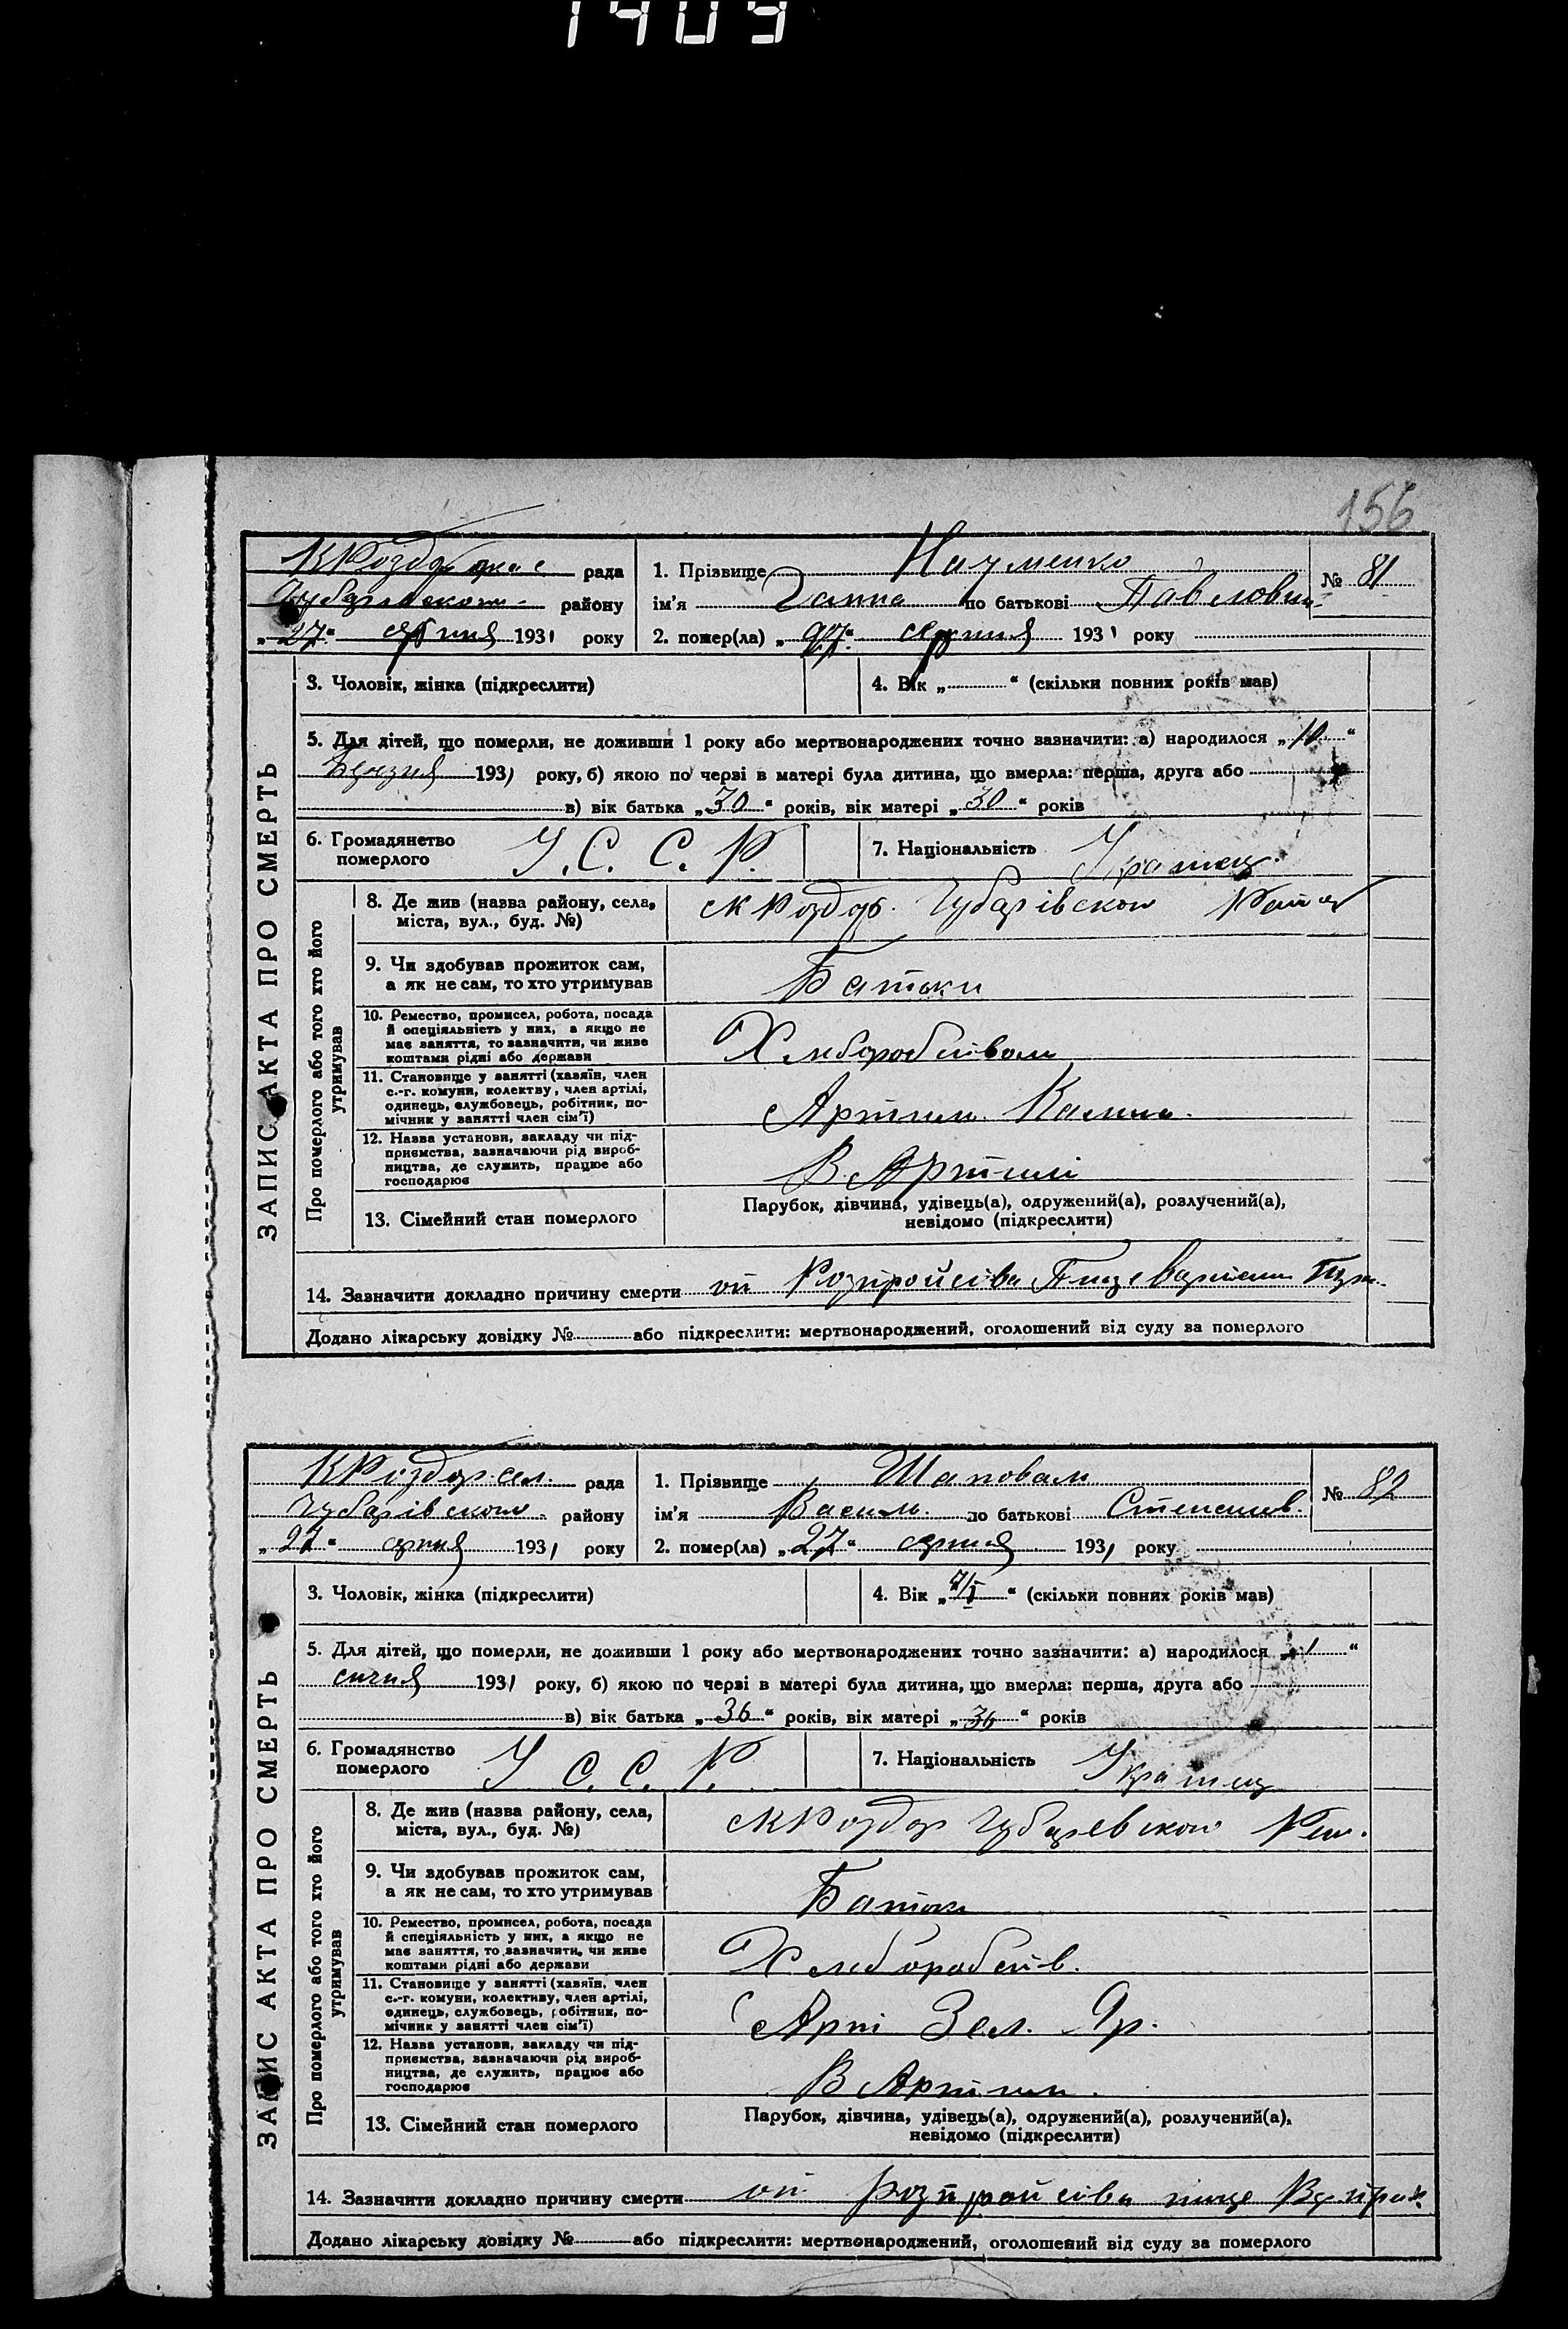 1409
156
КРоздор рада
Чубарівського району
„27“ серпня 1931 року
1. Прізвище Науменко
№ 81
ім'я Ганна по батькові Павловна
2. помер(ла) „27“ серпня 1931 року
ЗАПИС АКТА ПРО СМЕРТЬ
3. Чоловік, жінка (підкреслити)
4. Вік „ “ (скільки повних років мав)
5. Для дітей, що померли, не доживши 1 року або мертвонароджених точно вазначити: а) народилося „10“
1931 року, б) якою по черзі в матері була дитина, що вмерла: перша, друга або
в) вік батька „30“ років, вік матері „30“ років
6. Громадянство
померлого
У. С. С. Р.
7. Національність Украінец
Про померлого або того хто його
утримував
8. Де жив (назва району, села,
міста, вул., буд. №)
с КРоздор. Чубарівского Району
9. Чи здобував прожиток сам,
а як не сам, то хто утримував
Батьки
10. Ремество, промисел, робота, посада
й спеціяльність у них, а якщо не
має заняття, то зазначити, чи живе
коштами рідні або держави
Хліборобством
11. Становище у занятті (хазяїн, член
с.-г. комуни, колективу, член артілі,
одинець, службовець, робітник, по-
мічник у занятті член сім'ї)
Артили
12. Назва установи, закладу чи під-
приємства, зазначаючи рід вироб-
ництва, де служить, працює або
господарює
В Артилі
13. Сімейний стан померлого
Парубок, дівчина, удівець(а), одружений(а), розлучений(а),
невідомо (підкреслити)
14. Зазначити докладно причину смерти от Розтройства
Додано лікарську довідку № або підкреслити: мертвонароджений, оголошений від суду за померлого
КРоздор сел. рада
Чубарівского району
„27“ серпня 1931 року
1. Прізвище Шаповал
№ 82
ім'я Василь по батькові Степанов.
2. помер(ла) „27“ серпня 1931 року
ЗАПИС АКТА ПРО СМЕРТЬ
3. Чоловік, жінка (підкреслити)
4. Вік „ “ (скільки повних років мав)
5. Для дітей, що померли, не доживши 1 року або мертвонароджених точно зазначити: а) народилося „1“
січня 1931 року, б) якою по черзі в матері була дитина, що вмерла: перша, друга або
в) вік батька „36“ років, вік матері „36“ років
6. Громадянство
померлого
У С. С. Р.
7. Національність Украінец
Про померлого або того хто його
утримував
8. Де жив (назва району, села,
міста, вул., буд. №)
с КРоздор Чубаревского Рай.
9. Чи здобував прожиток сам,
а як не сам, то хто утримував
Батьки
10. Ремество, промисел, робота, посада
й спеціяльність у них, а якщо не
має заняття, то зазначити, чи живе
коштами рідні або держави
Хлеборобств.
11. Становище у занятті (хазяїн, член
с.-г. комуни, колективу, член артілі,
одинець, службовець, робітник, по-
мічник у занятті член сім'ї)
Арті Зел. Яр.
12. Назва установи, закладу чи під-
приємства, зазначаючи рід вироб-
ництва, де служить, працює або
господарює
В Артили.
13. Сімейний стан померлого
Парубок, дівчина, удівець(а), одружений(а), розлучений(а),
невідомо (підкреслити)
14. Зазначити докладно причину смерти от розтройства пище
Додано лікарську довідку № або підкреслити: мертвонароджений, оголошений від суду за померлого